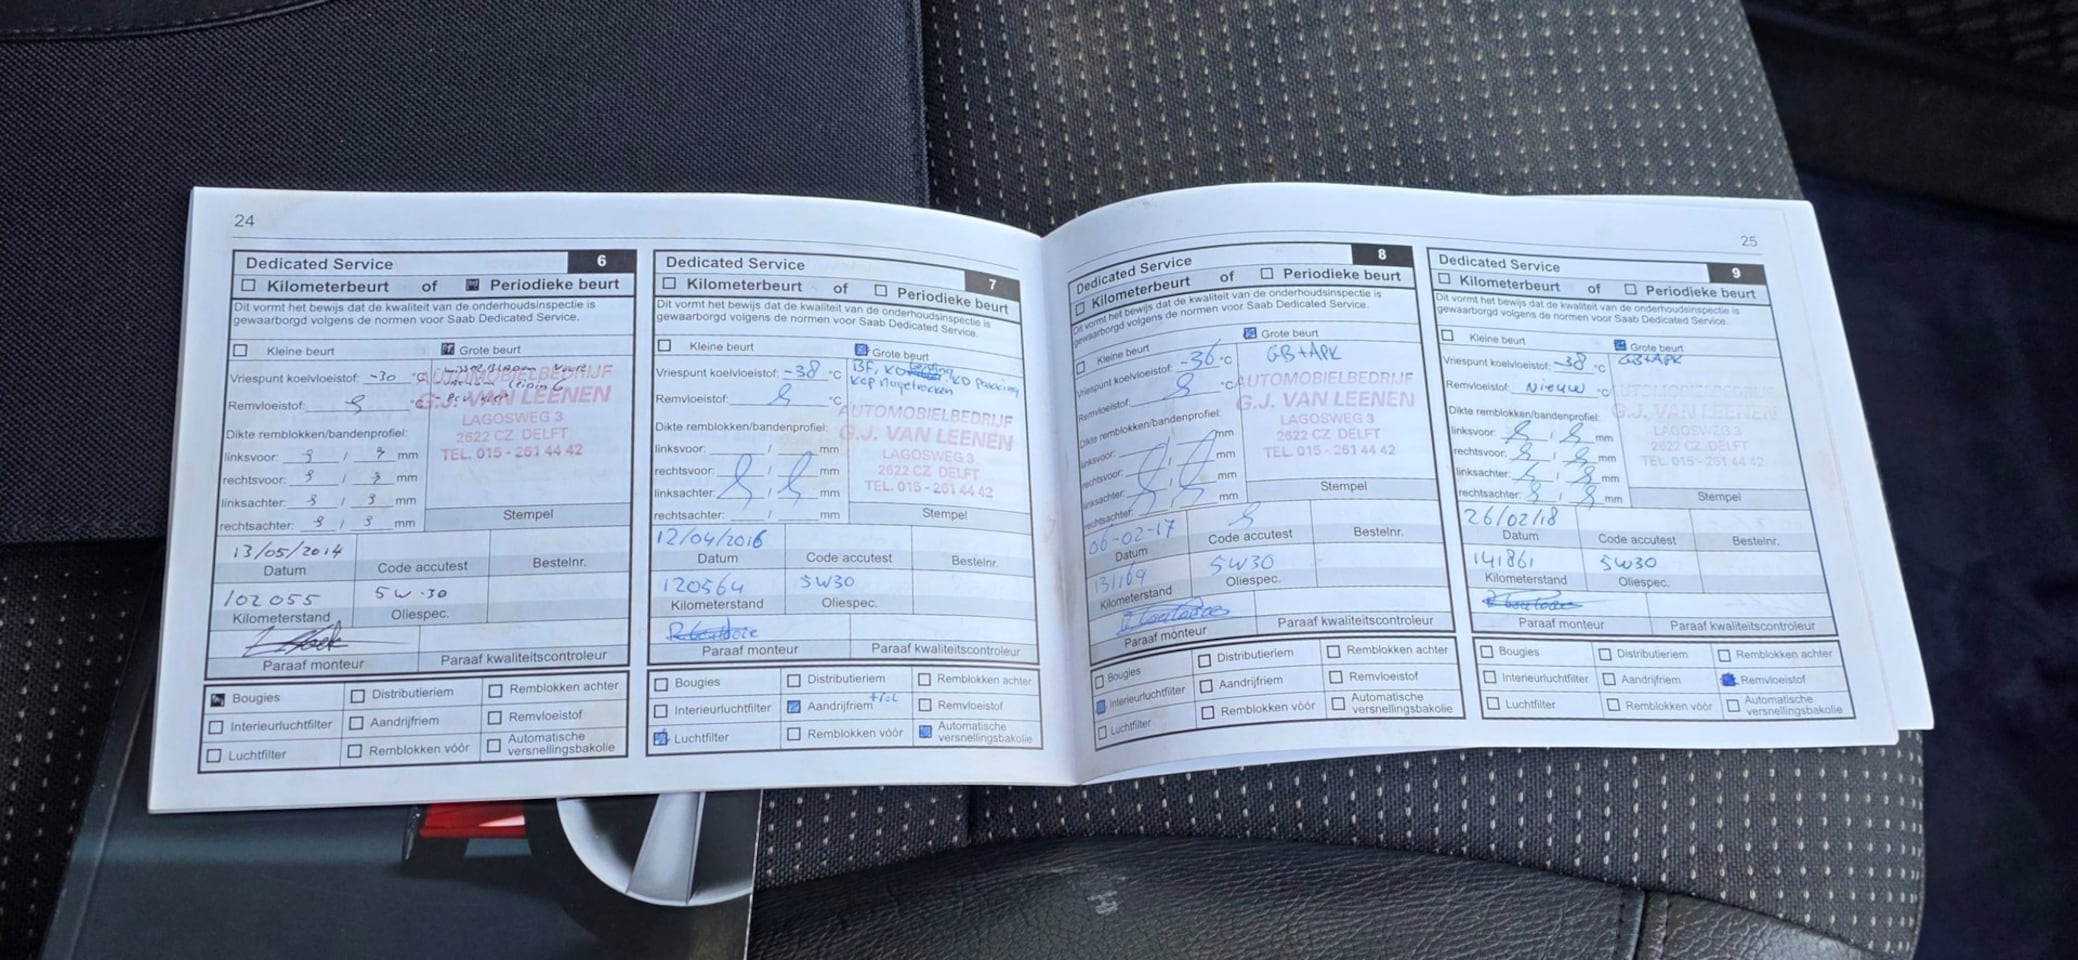 24
Dedicated Service 6
Kilometerbeurt of Periodieke beurt
Dit vormt het bewijs dat de kwaliteit van de onderhoudsinspectie is
gewaarborgd volgens de normen voor Saab Dedicated Service.
Kleine beurt Grote beurt
Vriespunt koelvloeistof: -30 °C
Remvloeistof: °C
AUTOMOBIELBEDRIJF
G.J. VAN LEENEN
LAGOSWEG 3
2622 CZ DELFT
TEL. 015 - 261 44 42
Dikte remblokken/bandenprofiel:
linksvoor: / mm
rechtsvoor: / mm
linksachter: / mm
rechtsachter: / mm
Stempel
13/05/2014
Datum Code accutest Bestelnr.
102055 5W-30
Kilometerstand Oliespec.
Paraaf monteur Paraaf kwaliteitscontroleur
Bougies Distributieriem Remblokken achter
Interieurluchtfilter Aandrijfriem Remvloeistof
Luchtfilter Remblokken vóór Automatische
versnellingsbakolie
Dedicated Service 7
Kilometerbeurt of Periodieke beurt
Dit vormt het bewijs dat de kwaliteit van de onderhoudsinspectie is
gewaarborgd volgens de normen voor Saab Dedicated Service.
Kleine beurt Grote beurt
Vriespunt koelvloeistof: -38 °C
Remvloeistof: °C
AUTOMOBIELBEDRIJF
G.J. VAN LEENEN
LAGOSWEG 3
2622 CZ DELFT
TEL. 015 - 261 44 42
Dikte remblokken/bandenprofiel:
linksvoor: / mm
rechtsvoor: / mm
linksachter: / mm
rechtsachter: / mm
Stempel
12/04/2016
Datum Code accutest Bestelnr.
120564 5W30
Kilometerstand Oliespec.
Paraaf monteur Paraaf kwaliteitscontroleur
Bougies Distributieriem Remblokken achter
Interieurluchtfilter Aandrijfriem Remvloeistof
Luchtfilter Remblokken vóór Automatische
versnellingsbakolie
25
Dedicated Service 8
Kilometerbeurt of Periodieke beurt
Dit vormt het bewijs dat de kwaliteit van de onderhoudsinspectie is
gewaarborgd volgens de normen voor Saab Dedicated Service.
Kleine beurt Grote beurt
Vriespunt koelvloeistof: -36 °C GB+APK
Remvloeistof: °C
AUTOMOBIELBEDRIJF
G.J. VAN LEENEN
LAGOSWEG 3
2622 CZ DELFT
TEL. 015 - 261 44 42
Dikte remblokken/bandenprofiel:
linksvoor: / mm
rechtsvoor: / mm
linksachter: / mm
rechtsachter: / mm
Stempel
06-02-17
Datum Code accutest Bestelnr.
131169 5W30
Kilometerstand Oliespec.
Paraaf monteur Paraaf kwaliteitscontroleur
Bougies Distributieriem Remblokken achter
Interieurluchtfilter Aandrijfriem Remvloeistof
Luchtfilter Remblokken vóór Automatische
versnellingsbakolie
Dedicated Service 9
Kilometerbeurt of Periodieke beurt
Dit vormt het bewijs dat de kwaliteit van de onderhoudsinspectie is
gewaarborgd volgens de normen voor Saab Dedicated Service.
Kleine beurt Grote beurt
Vriespunt koelvloeistof: -38 °C GB+APK
Remvloeistof: Nieuw °C
AUTOMOBIELBEDRIJF
G.J. VAN LEENEN
LAGOSWEG 3
2622 CZ DELFT
TEL. 015 - 261 44 42
Dikte remblokken/bandenprofiel:
linksvoor: / mm
rechtsvoor: / mm
linksachter: / mm
rechtsachter: / mm
Stempel
26/02/18
Datum Code accutest Bestelnr.
141861 5W30
Kilometerstand Oliespec.
Paraaf monteur Paraaf kwaliteitscontroleur
Bougies Distributieriem Remblokken achter
Interieurluchtfilter Aandrijfriem Remvloeistof
Luchtfilter Remblokken vóór Automatische
versnellingsbakolie